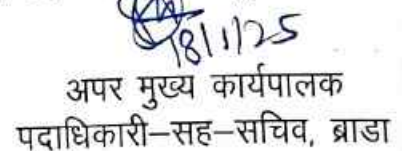 18/1/25
अपर मुख्य कार्यपालक
पदाधिकारी–सह–सचिव, ब्राडा